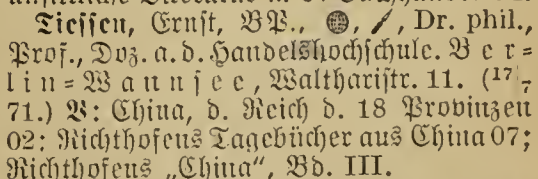 Tiessen, Ernst, BP., Dr. phil.,
Prof., Doz. a. d. Handelshochschule. Ber=
lin=Wannsee, Waltharistr. 11. (17/7
71.) W: China, d. Reich d. 18 Provinzen
02; Richthofens Tagebücher aus China 07;
Richthofens „China“, Bd. III.